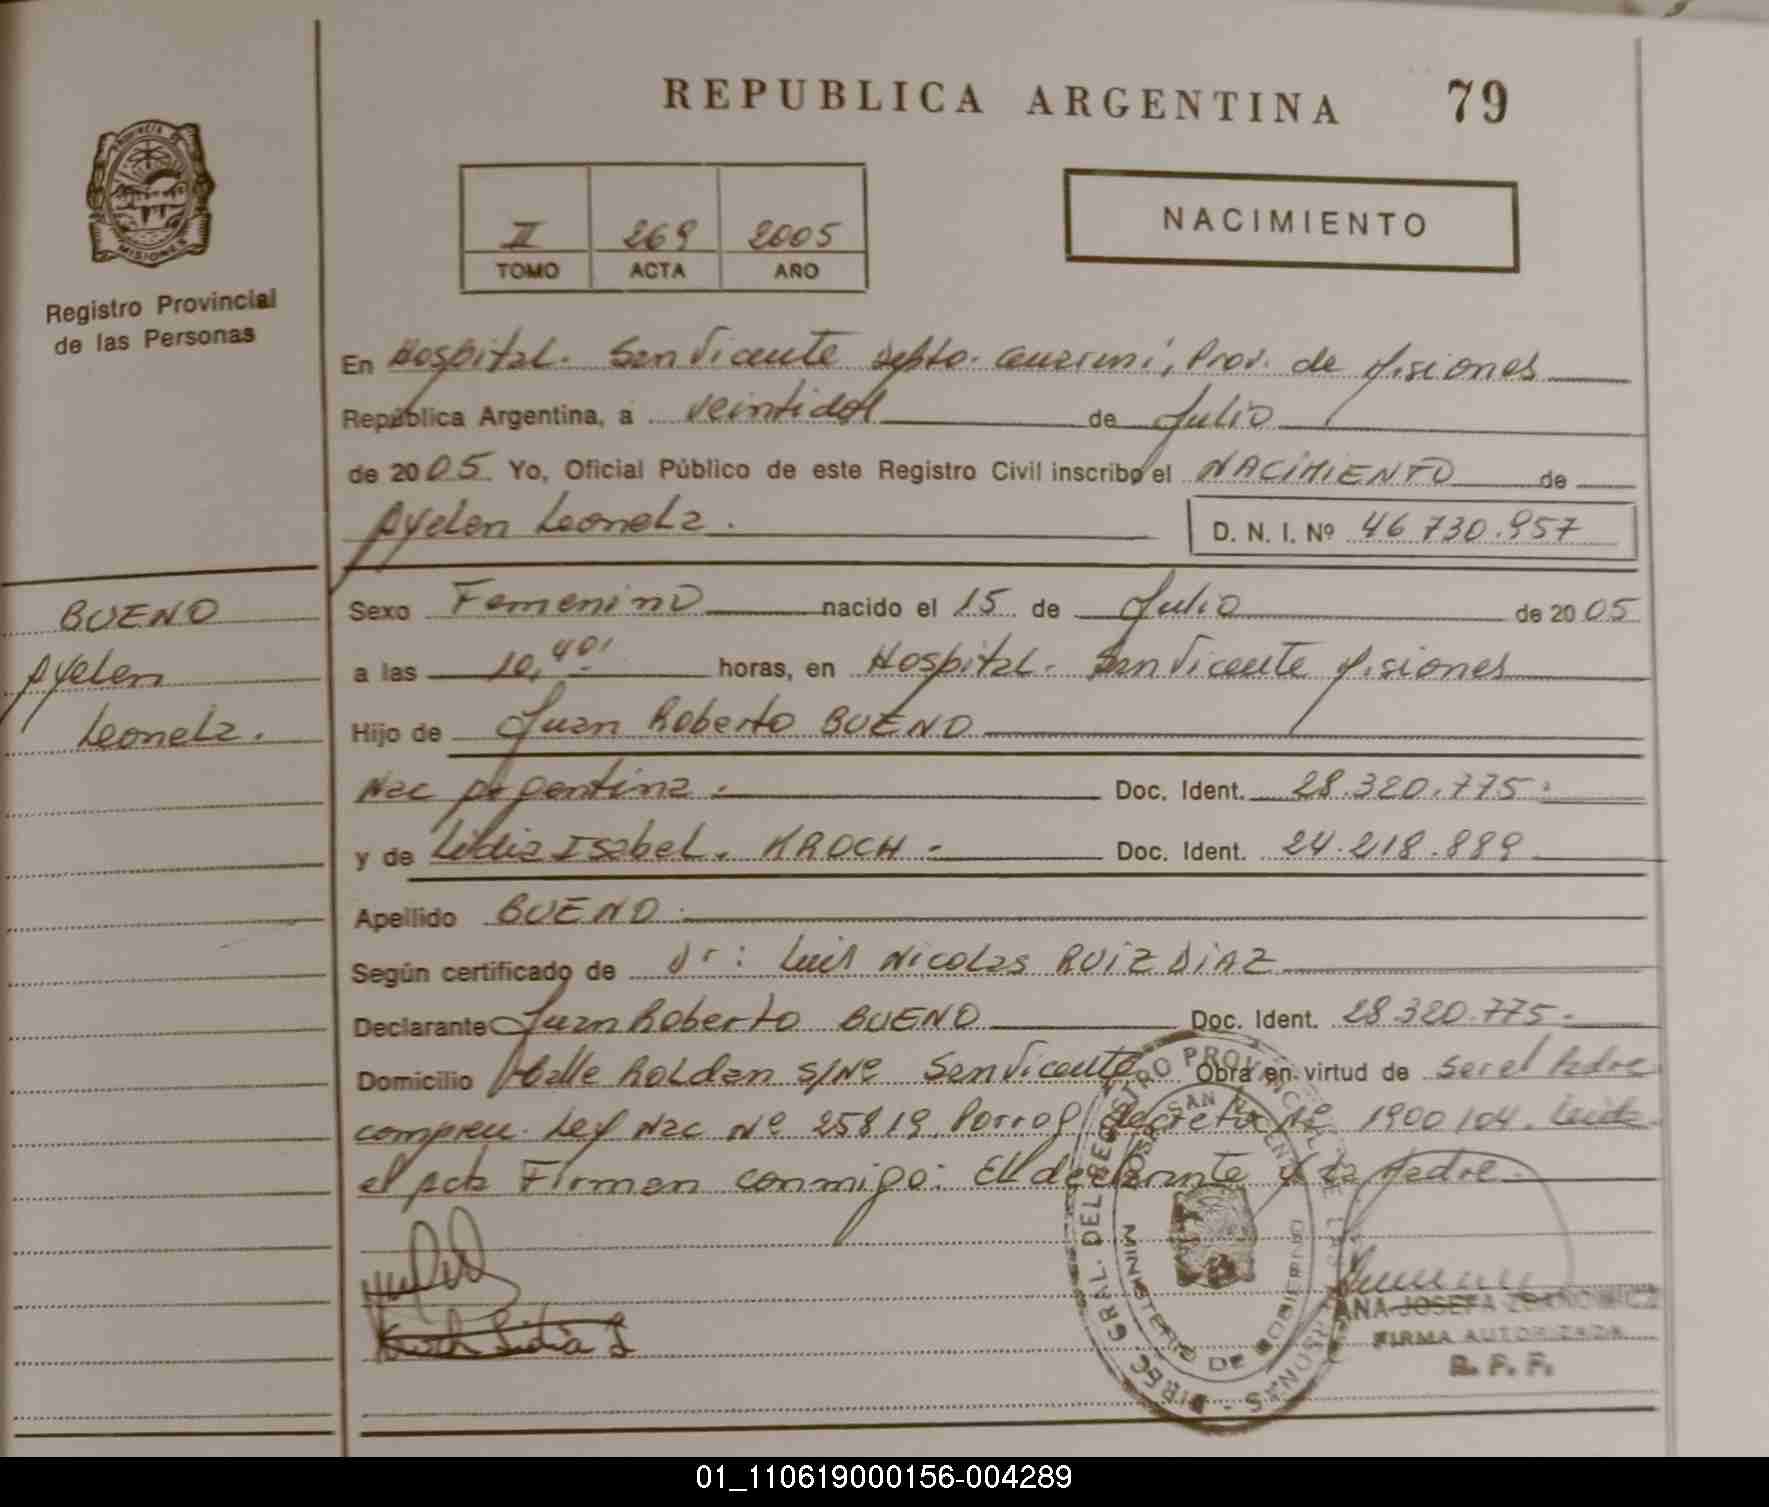 REPUBLICA ARGENTINA 79
PROVINCIA DE
MISIONES
Registro Provincial
de las Personas
II 269 2005
TOMO ACTA AÑO
NACIMIENTO
En Hospital. San Vicente Depto. Guarani, Prov. de Misiones
República Argentina, a veintidos de Julio
de 2005. Yo, Oficial Público de este Registro Civil inscribo el NACIMIENTO de
Ayelen Leonela. D. N. I. Nº 46 730.957
BUENO
Ayelen
Leonela.
Sexo Femenino nacido el 15 de Julio de 2005
a las 10,40' horas, en Hospital. San Vicente Misiones
Hijo de Juan Roberto BUENO
Nac Argentina. Doc. Ident. 28.320.775.
y de Lidia Isabel. KROCH - Doc. Ident. 24.218.889
Apellido BUENO.
Según certificado de Dr: Luis Nicolas RUIZ DIAZ
Declarante Juan Roberto BUENO Doc. Ident. 28.320.775.
Domicilio Calle Roldan S/Nº San Vicente Obra en virtud de ser el Padre
Ley Nac Nº 25819. Decreto Nº 1900/04. Leida
el Acta Firman conmigo: El declarante y la Madre.
DIREC. GRAL. DEL REGISTRO PROVINCIAL DE LAS PERSONAS
SAN VICENTE
MINISTERIO DE GOBIERNO
ANA JOSEFA
FIRMA AUTORIZADA
01_110619000156-004289